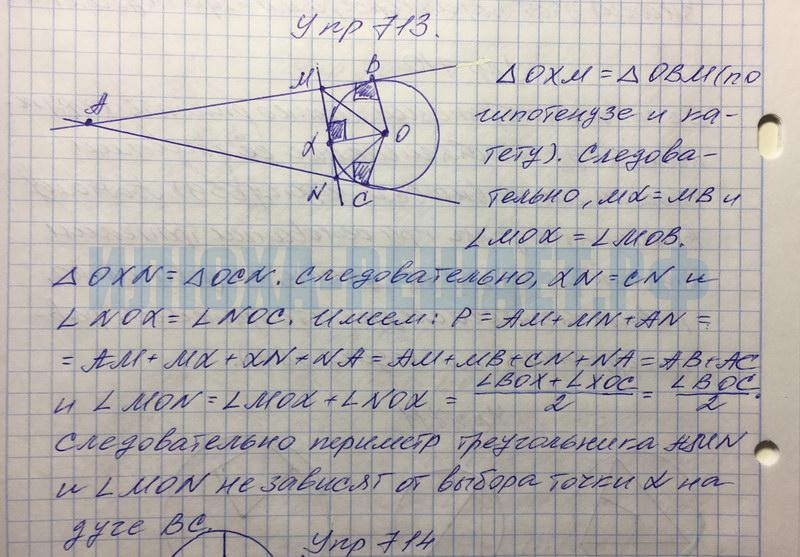 Упр 713.
A
M
B
X
O
N
C
△OXM = △OBM (по
гипотенузе и ка-
тету). Следова-
тельно, MX = MB и
∠MOX = ∠MOB.
ИЛЮХА-РЕШАЕТ.РФ
△OXN = △OCN. Следовательно, XN = CN и
∠NOX = ∠NOC. Имеем: P = AM + MN + AN =
= AM + MX + XN + NA = AM + MB + CN + NA = AB + AC
и ∠MON = ∠MOX + ∠NOX = (∠BOX + ∠XOC)/2 = ∠BOC/2.
Следовательно периметр треугольника AMN
и ∠MON не зависят от выбора точки X на
дуге BC.
Упр 714